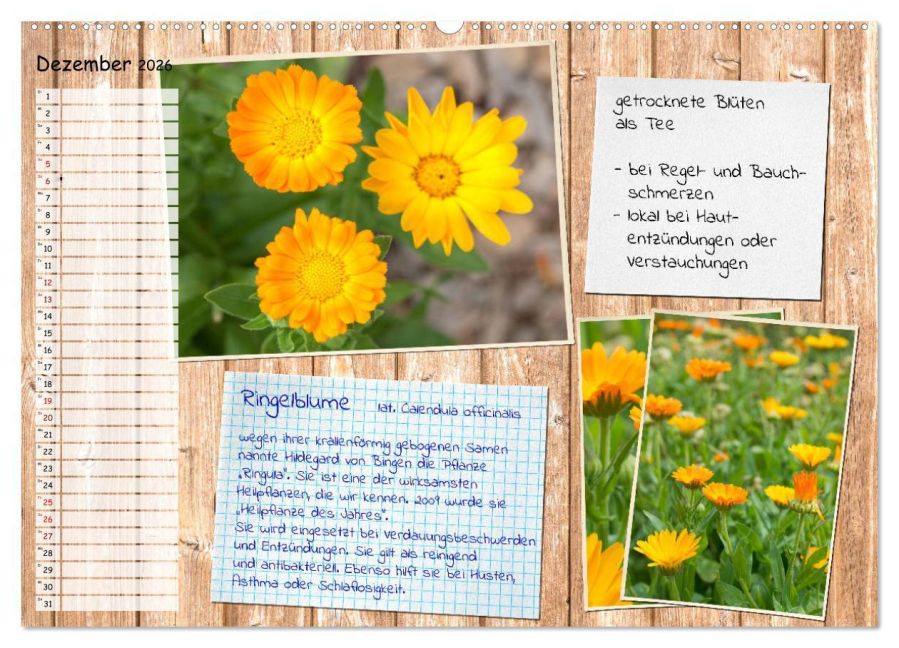 Dezember 2026
1
2
3
4
5
6
7
8
9
10
11
12
13
14
15
16
17
18
19
20
21
22
23
24
25
26
27
28
29
30
31
getrocknete Blüten
als Tee
- bei Regel- und Bauch-
schmerzen
- lokal bei Haut-
entzündungen oder
verstauchungen
Ringelblume lat. Calendula officinalis
wegen ihrer krallenförmig gebogenen Samen
nannte Hildegard von Bingen die Pflanze
„Ringula“. Sie ist eine der wirksamsten
Heilpflanzen, die wir kennen. 2009 wurde sie
„Heilpflanze des Jahres“.
Sie wird eingesetzt bei Verdauungsbeschwerden
und Entzündungen. Sie gilt als reinigend
und antibakteriell. Ebenso hilft sie bei Husten,
Asthma oder Schlaflosigkeit.